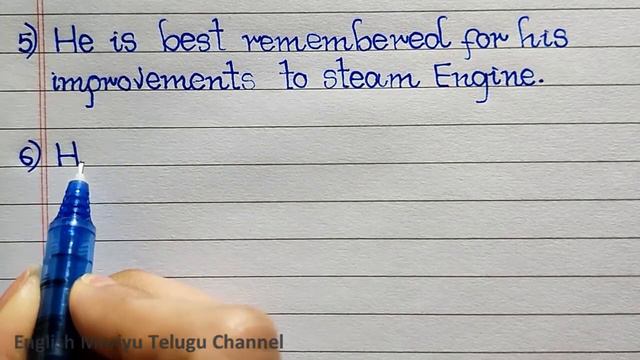 5) He is best remembered for his
improvements to steam Engine.
6) H
English Mariyu Telugu Channel